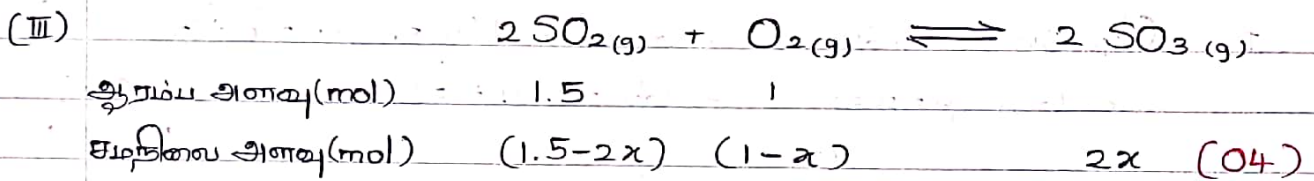 (III) 2 SO₂(g) + O₂(g) ⇌ 2 SO₃ (g)
ஆரம்ப அளவு(mol) 1.5 1
சமநிலை அளவு(mol) (1.5-2x) (1-x) 2x (04)